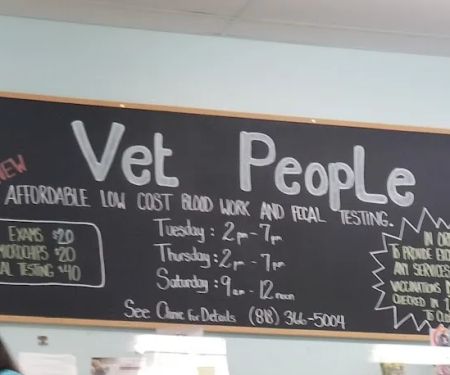 Vet People
NEW
AFFORDABLE LOW COST BLOOD WORK AND FECAL TESTING.
EXAMS $20
MICROCHIPS $20
AL TESTING $40
Tuesday: 2pm - 7pm
Thursday: 2pm - 7pm
Saturday: 9am - 12noon
See Clinic for Details (818) 366-5004
IN OR
TO PROVIDE
ANY SERVICES
VACCINATIONS
CHECKED IN 1
TO CLO